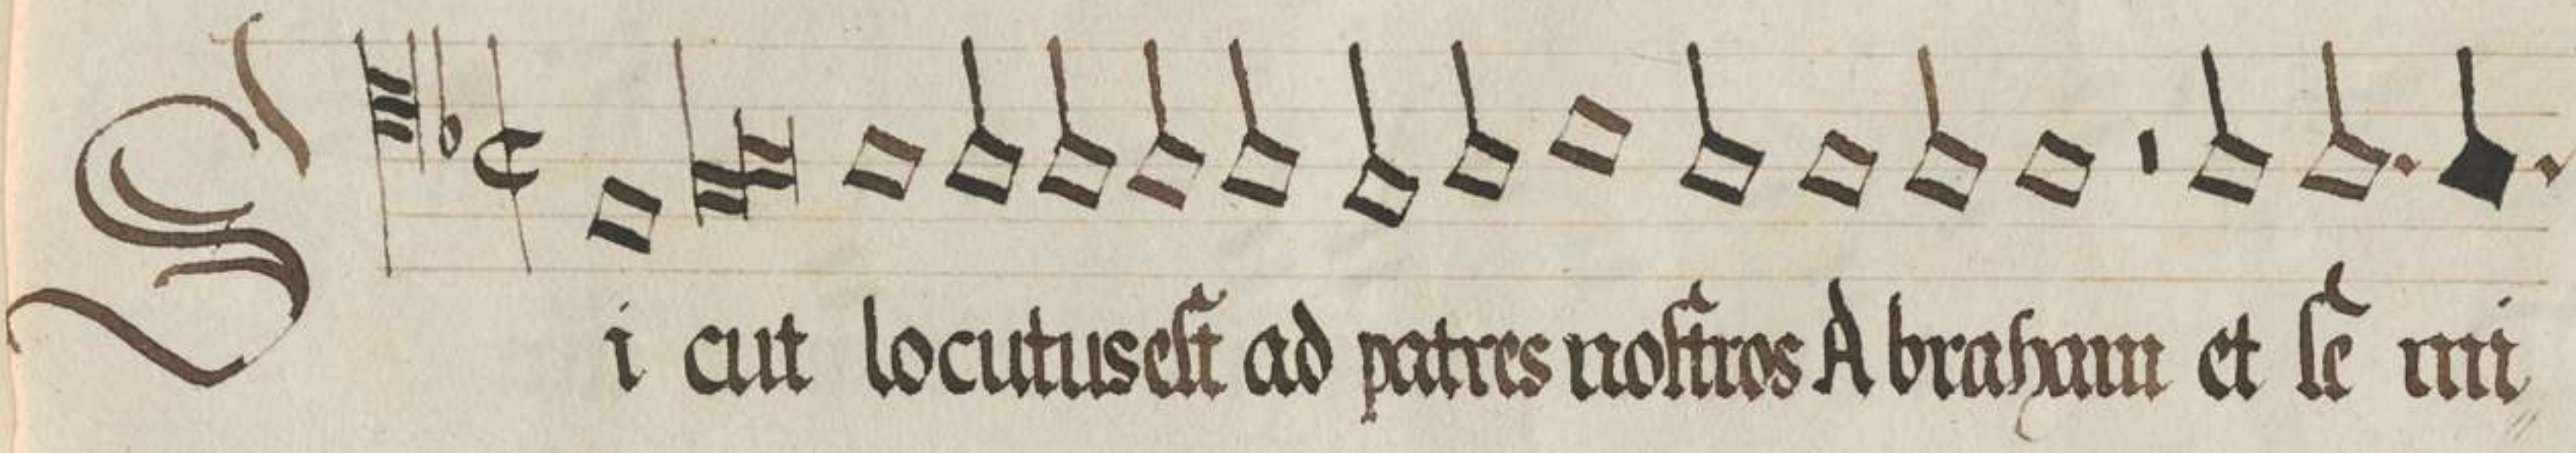 Si cut locutus est ad patres nostros Abraham et se mi